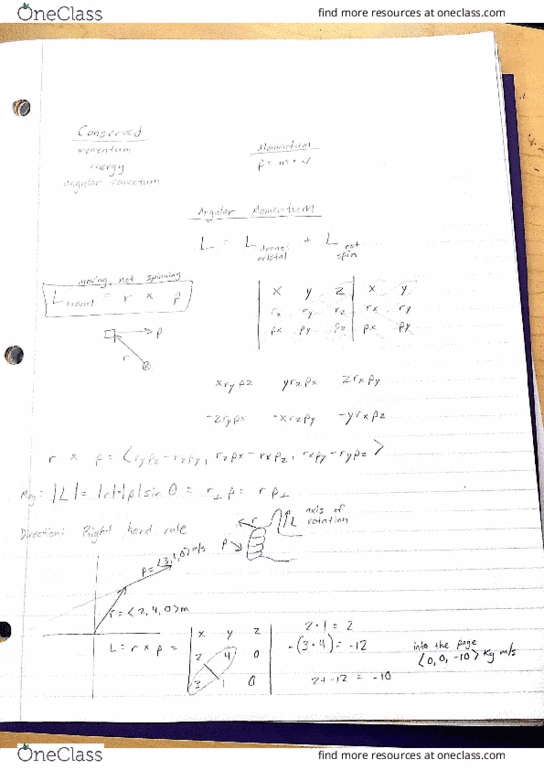 OneClass
find more resources at oneclass.com
Conserved
momentum
energy
angular momentum
Momentum
p = m • v
Angular Momentum
L = L trans + L rot
orbital spin
moving, not spinning
L transl = r x p
x y z x y
rx ry rz rx ry
px py pz px py
p
r
x ry pz y rz px z rx py
-z ry px -x rz py -y rx pz
r x p = <ry pz - rz py, rz px - rx pz, rx py - ry px>
Mag = |L| = |r||p| sin θ = r⊥ p = r p⊥
Direction: Right hand rule
r
L
axis of
rotation
p
p = <3,1,0> m/s
r = <2,4,0> m
L = r x p =
x y z
2 4 0
3 1 0
2 • 1 = 2
-(3 • 4) = -12
2 + -12 = -10
into the page
<0, 0, -10> Kg m/s
OneClass
find more resources at oneclass.com